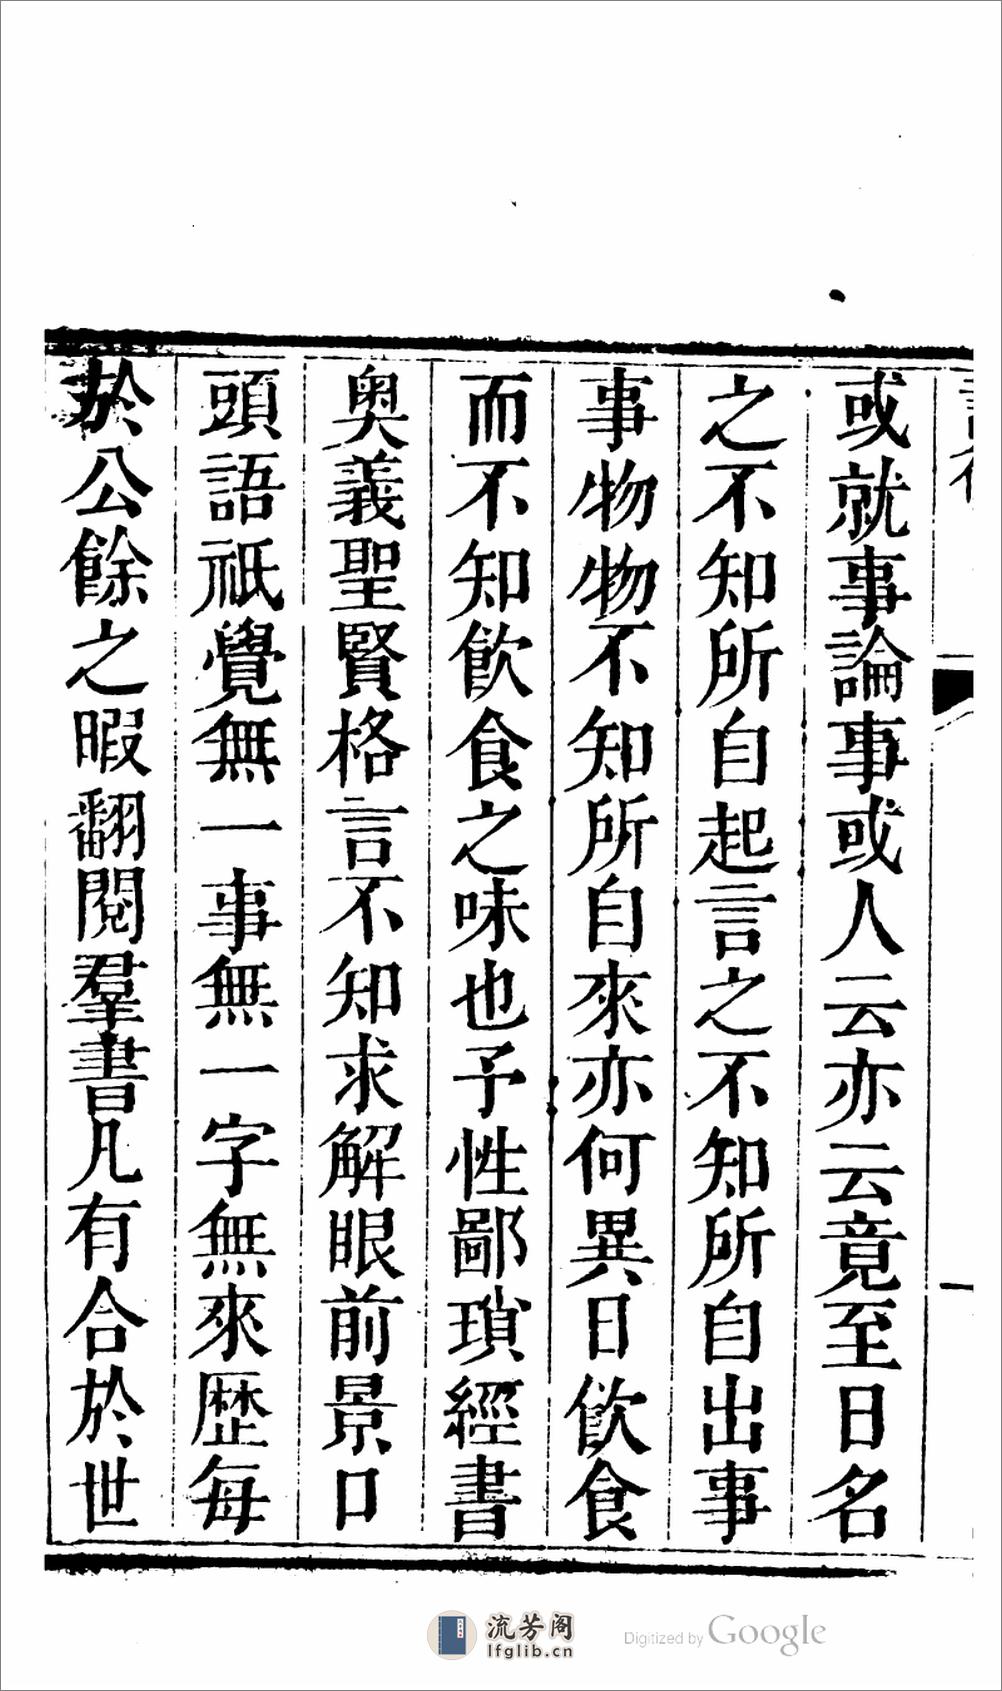 或就事論事或人云亦云竟至日名
之不知所自起言之不知所自出事
事物物不知所自來亦何異日飲食
而不知飲食之味也予性鄙瑣經書
奧義聖賢格言不知求解眼前景口
頭語祗覺無一事無一字無來歷每
於公餘之暇翻閱羣書凡有合於世
流芳阁
lfglib.cn
Digitized by Google